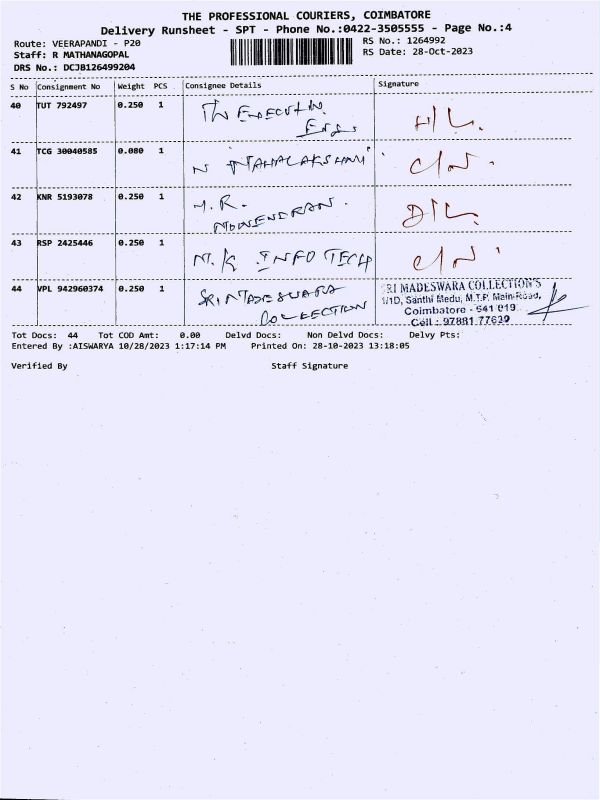 THE PROFESSIONAL COURIERS, COIMBATORE
Delivery Runsheet - SPT - Phone No.:0422-3505555 - Page No.:4
Route: VEERAPANDI - P20 RS No.: 1264992
Staff: R MATHANAGOPAL RS Date: 28-Oct-2023
DRS No.: DCJB126499204
S No Consignment No Weight PCS Consignee Details Signature
40 TUT 792497 0.250 1
41 TCG 30040585 0.080 1 N MAHALAKSHMI
42 KNR 5193078 0.250 1
43 RSP 2425446 0.250 1 M.K INFO TECH
44 VPL 942960374 0.250 1 SRI MADESWARA
COLLECTION
SRI MADESWARA COLLECTION'S
1/1D, Santhi Medu, M.T.P. Main Road,
Coimbatore - 641 019
Cell : 97881 77639
Tot Docs: 44 Tot COD Amt: 0.00 Delvd Docs: Non Delvd Docs: Delvy Pts:
Entered By :AISWARYA 10/28/2023 1:17:14 PM Printed On: 28-10-2023 13:18:05
Verified By Staff Signature